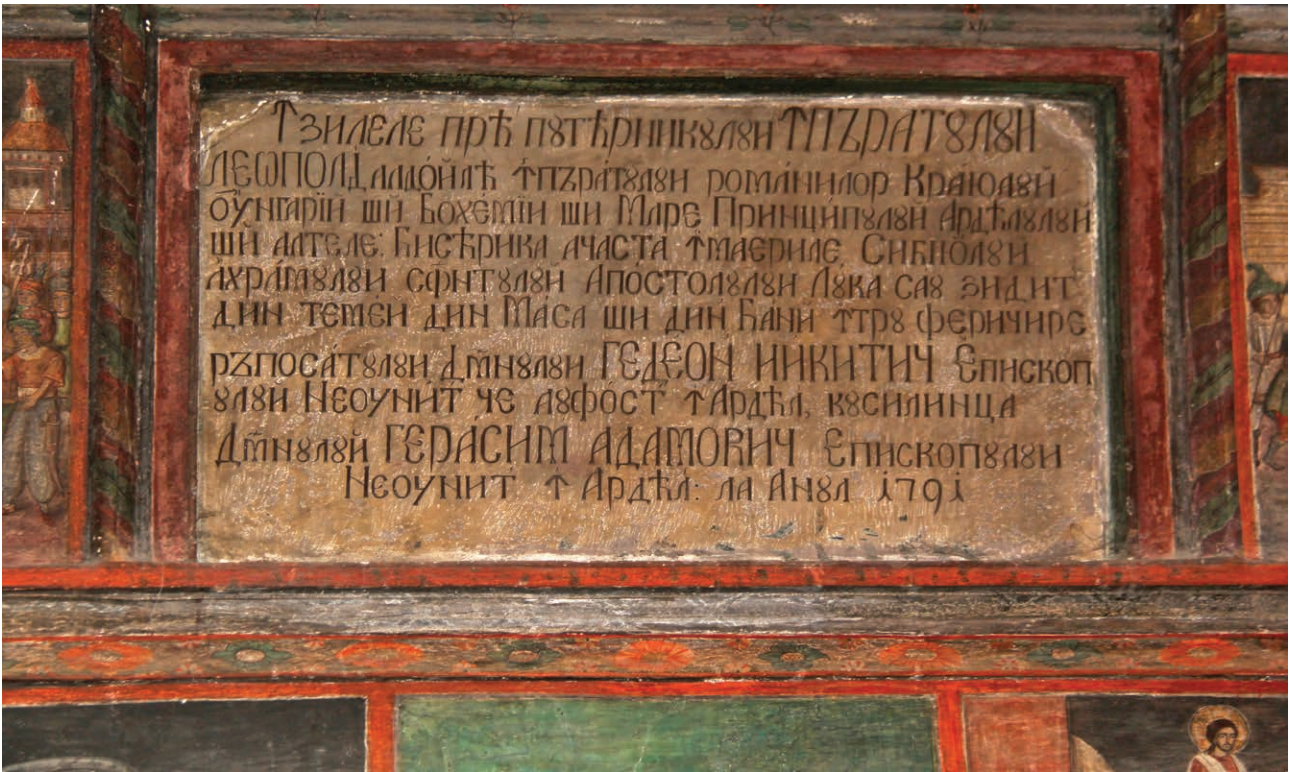 Ꙟ зилеле прѣ пꙋтѣрникꙋлꙋи Ꙟпъратꙋлꙋи
Леѡполд ал до́йлѣ ꙟпъра́тꙋлꙋи рома́нилор Краюлꙋй
Оу҆нгарїи шѝ Бохемїи ши Ма́ре Принципꙋлꙋи Ардѣ́лꙋлꙋи
шѝ алтеле: Бисѣрика ачаста ꙟ маериле Сибїюлꙋи
а храмꙋлꙋи сфнтꙋлꙋй Апо́столꙋлꙋи Лꙋка сaꙋ зидит
дин теме́и дин Ма́са ши дин Бани ꙟтрꙋ феричире
ръпоса́тꙋлꙋи дм҃нꙋлꙋи ГЕДЕОН НИКИТИЧ Епископ
ꙋлꙋи Неоуни́т че аꙋ фо́ст ꙟ Ардѣл, кꙋ силинца
Дм҃нꙋлꙋй ГЕРАСИМ АДАМОВИЧ Епископꙋлꙋи
Неоунит ꙟ Ардѣл: ла Анꙋл 1791